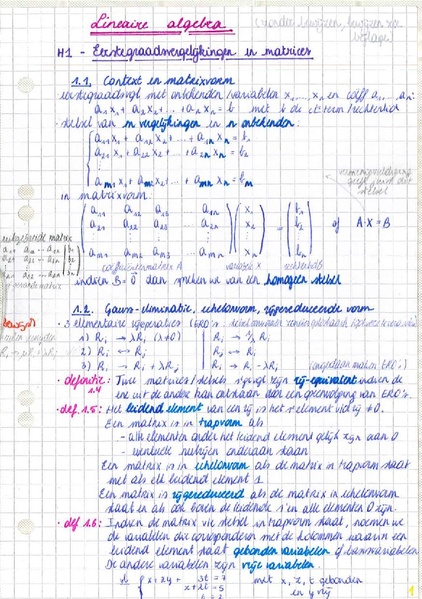 Lineaire algebra
(zonder bewijzen, bewijzen zie bijlage)
H1 - Eerstegraadsvergelijkingen en matrices
1.1. Context en matrixvorm
eerstegraadsvgl met onbekenden/variabelen x₁, ..., xₙ en coëff a₁ ... aₙ:
a₁x₁ + a₂x₂ + ... + aₙxₙ = b met b de cte term/rechterlid
stelsel van m vergelijkingen in n onbekenden:
a₁₁x₁ + a₁₂x₂ + ... + a₁ₙxₙ = b₁
a₂₁x₁ + a₂₂x₂ + ... + a₂ₙxₙ = b₂
⋮
aₘ₁x₁ + aₘ₂x₂ + ... + aₘₙxₙ = bₘ
in matrixvorm:
a₁₁ a₁₂ a₁₃ ... a₁ₙ x₁ b₁
a₂₁ a₂₂ a₂₃ ... a₂ₙ x₂ = b₂ of A·X = B
⋮ ⋮ ⋮ ⋮ ⋮
aₘ₁ aₘ₂ aₘ₃ ... aₘₙ xₙ bₘ
coëfficiëntenmatrix A variabelen X rechterlid B
indien B = 0 dan spreken we van een homogeen stelsel
1.2. Gauss-eliminatie, echelonvorm, rijgereduceerde vorm
3 elementaire rijoperaties (ERO's:
1) Rᵢ → λRᵢ (λ≠0) | Rᵢ → 1/λ Rᵢ
2) Rᵢ ↔ Rⱼ | Rᵢ ↔ Rⱼ
3) Rᵢ → Rᵢ + λRⱼ | Rᵢ → Rᵢ - λRⱼ
definitie 1.4: Twee matrices/stelsels zijn rij-equivalent indien de
ene uit de andere kan ontstaan door een opeenvolging van ERO's.
def 1.5: Het leidend element van een rij is het 1ᵉ element vd rij ≠ 0.
Een matrix is in trapvorm als
- alle elementen onder het leidend element gelijk zijn aan 0
- eventuele nulrijen onderaan staan
Een matrix is in echelonvorm als de matrix in trapvorm staat
met als elk leidend element 1
Een matrix is rijgereduceerd als de matrix in echelonvorm
staat en als ook boven de leidende 1'en alle elementen 0 zijn.
def 1.6: Indien de matrix vh stelsel in trapvorm staat, noemen we
de variabelen die corresponderen met de kolommen waarin een
leidend element staat gebonden variabelen of basisvariabelen
De andere variabelen zijn vrije variabelen.
met x, z, t gebonden
en y vrij
1